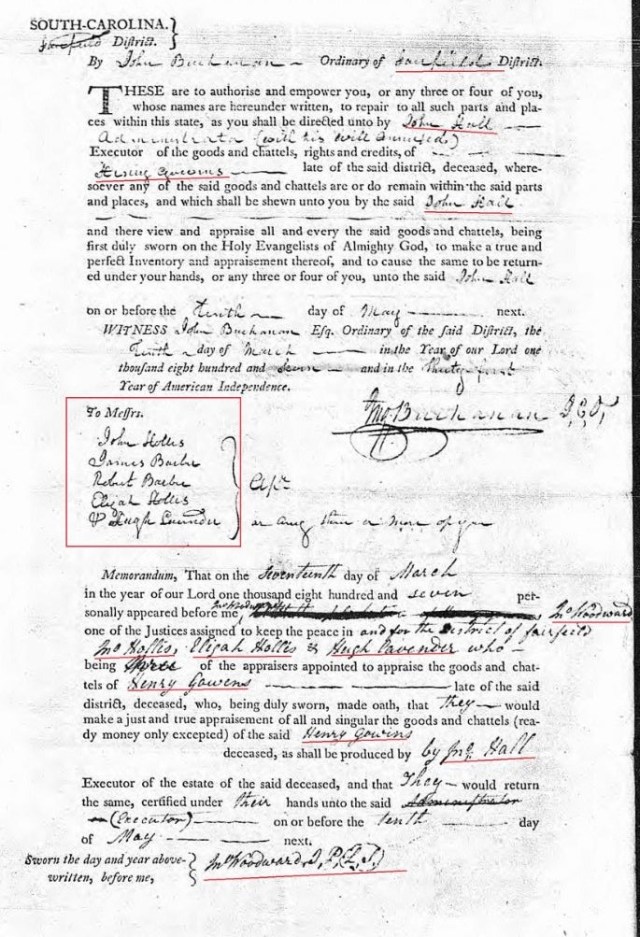 SOUTH-CAROLINA.
Fairfield District.
By John Buchanan Ordinary of Fairfield District.
THESE are to authorise and empower you, or any three or four of you,
whose names are hereunder written, to repair to all such parts and pla-
ces within this state, as you shall be directed unto by John Hall
Administrator (with his Will annexed)
Executor of the goods and chattels, rights and credits, of
Henry Gowens late of the said district, deceased, where-
soever any of the said goods and chattels are or do remain within the said parts
and places, and which shall be shewn unto you by the said John Hall
and there view and appraise all and every the said goods and chattels, being
first duly sworn on the Holy Evangelists of Almighty God, to make a true and
perfect Inventory and appraisement thereof, and to cause the same to be return-
ed under your hands, or any three or four of you, unto the said John Hall
on or before the Tenth day of May next.
WITNESS John Buchanan Esq. Ordinary of the said District, the
Tenth day of March in the Year of our Lord one
thousand eight hundred and seven and in the thirty first
Year of American Independence.
Jno Buchanan
To Messrs.
John Hollis
James Barber
Robert Barber
Elijah Hollis
& Hugh Lavender
or any three or more of you
Memorandum, That on the Seventeenth day of March
in the year of our Lord one thousand eight hundred and seven per-
sonally appeared before me, Jno Woodward
one of the Justices assigned to keep the peace in and for the District of fairfield
Jno Hollis, Elijah Hollis & Hugh Lavender who
being three of the appraisers appointed to appraise the goods and chat-
tels of Henry Gowens late of the said
district, deceased, who, being duly sworn, made oath, that they would
make a just and true appraisement of all and singular the goods and chattels (rea-
dy money only excepted) of the said Henry Gowins
deceased, as shall be produced by Jno. Hall
Executor of the estate of the said deceased, and that They would return
the same, certified under their hands unto the said Administrator
(Executor) on or before the tenth day
of May next.
Sworn the day and year above-
written, before me, Jno Woodward